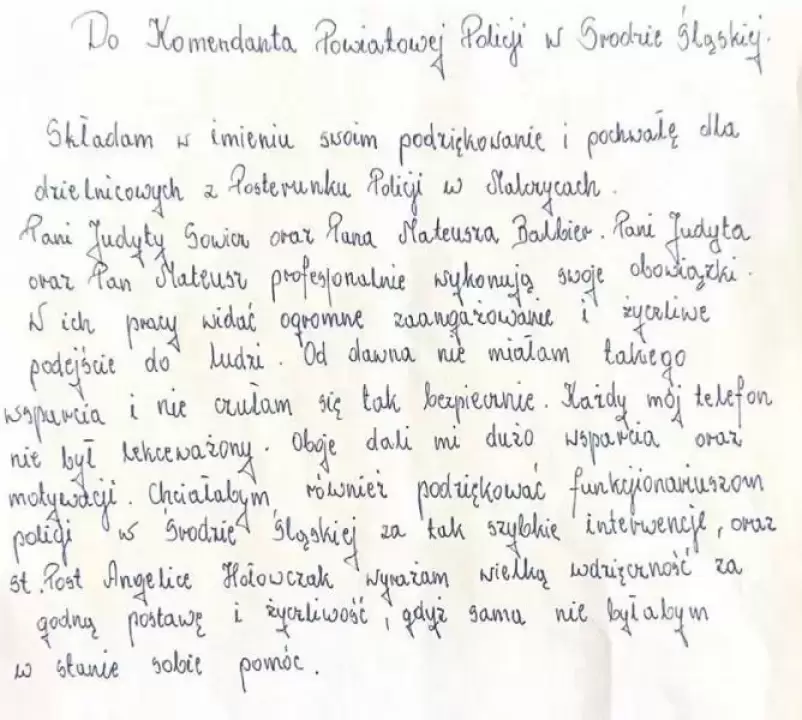 Do Komendanta Powiatowej Policji w Środzie Śląskiej.
Składam w imieniu swoim podziękowanie i pochwałę dla
dzielnicowych z Posterunku Policji w Malczycach.
Pani Judyty Sowier oraz Pana Mateusza Balbier. Pani Judyta
oraz Pan Mateusz profesjonalnie wykonują swoje obowiązki.
W ich pracy widać ogromne zaangażowanie i życzliwe
podejście do ludzi. Od dawna nie miałam takiego
wsparcia i nie czułam się tak bezpiecznie. Każdy mój telefon
nie był lekceważony. Oboje dali mi dużo wsparcia oraz
motywacji. Chciałabym również podziękować funkcjonariuszom
policji w Środzie Śląskiej za tak szybkie interwencje, oraz
st. Post Angelice Hołowczak wyrażam wielką wdzięczność za
godną postawę i życzliwość, gdyż sama nie byłabym
w stanie sobie pomóc.